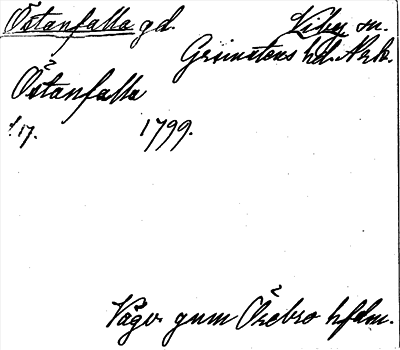 Östanfalla gd. Viby sn.
Grimstens hd. Nrk.
Östanfalla
1799.
Vägv. gnm Örebro hfdm.